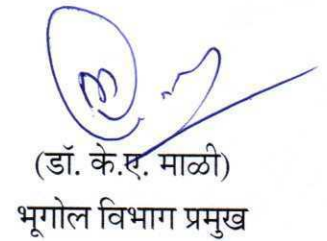 (डॉ. के.ए. माळी)
भूगोल विभाग प्रमुख